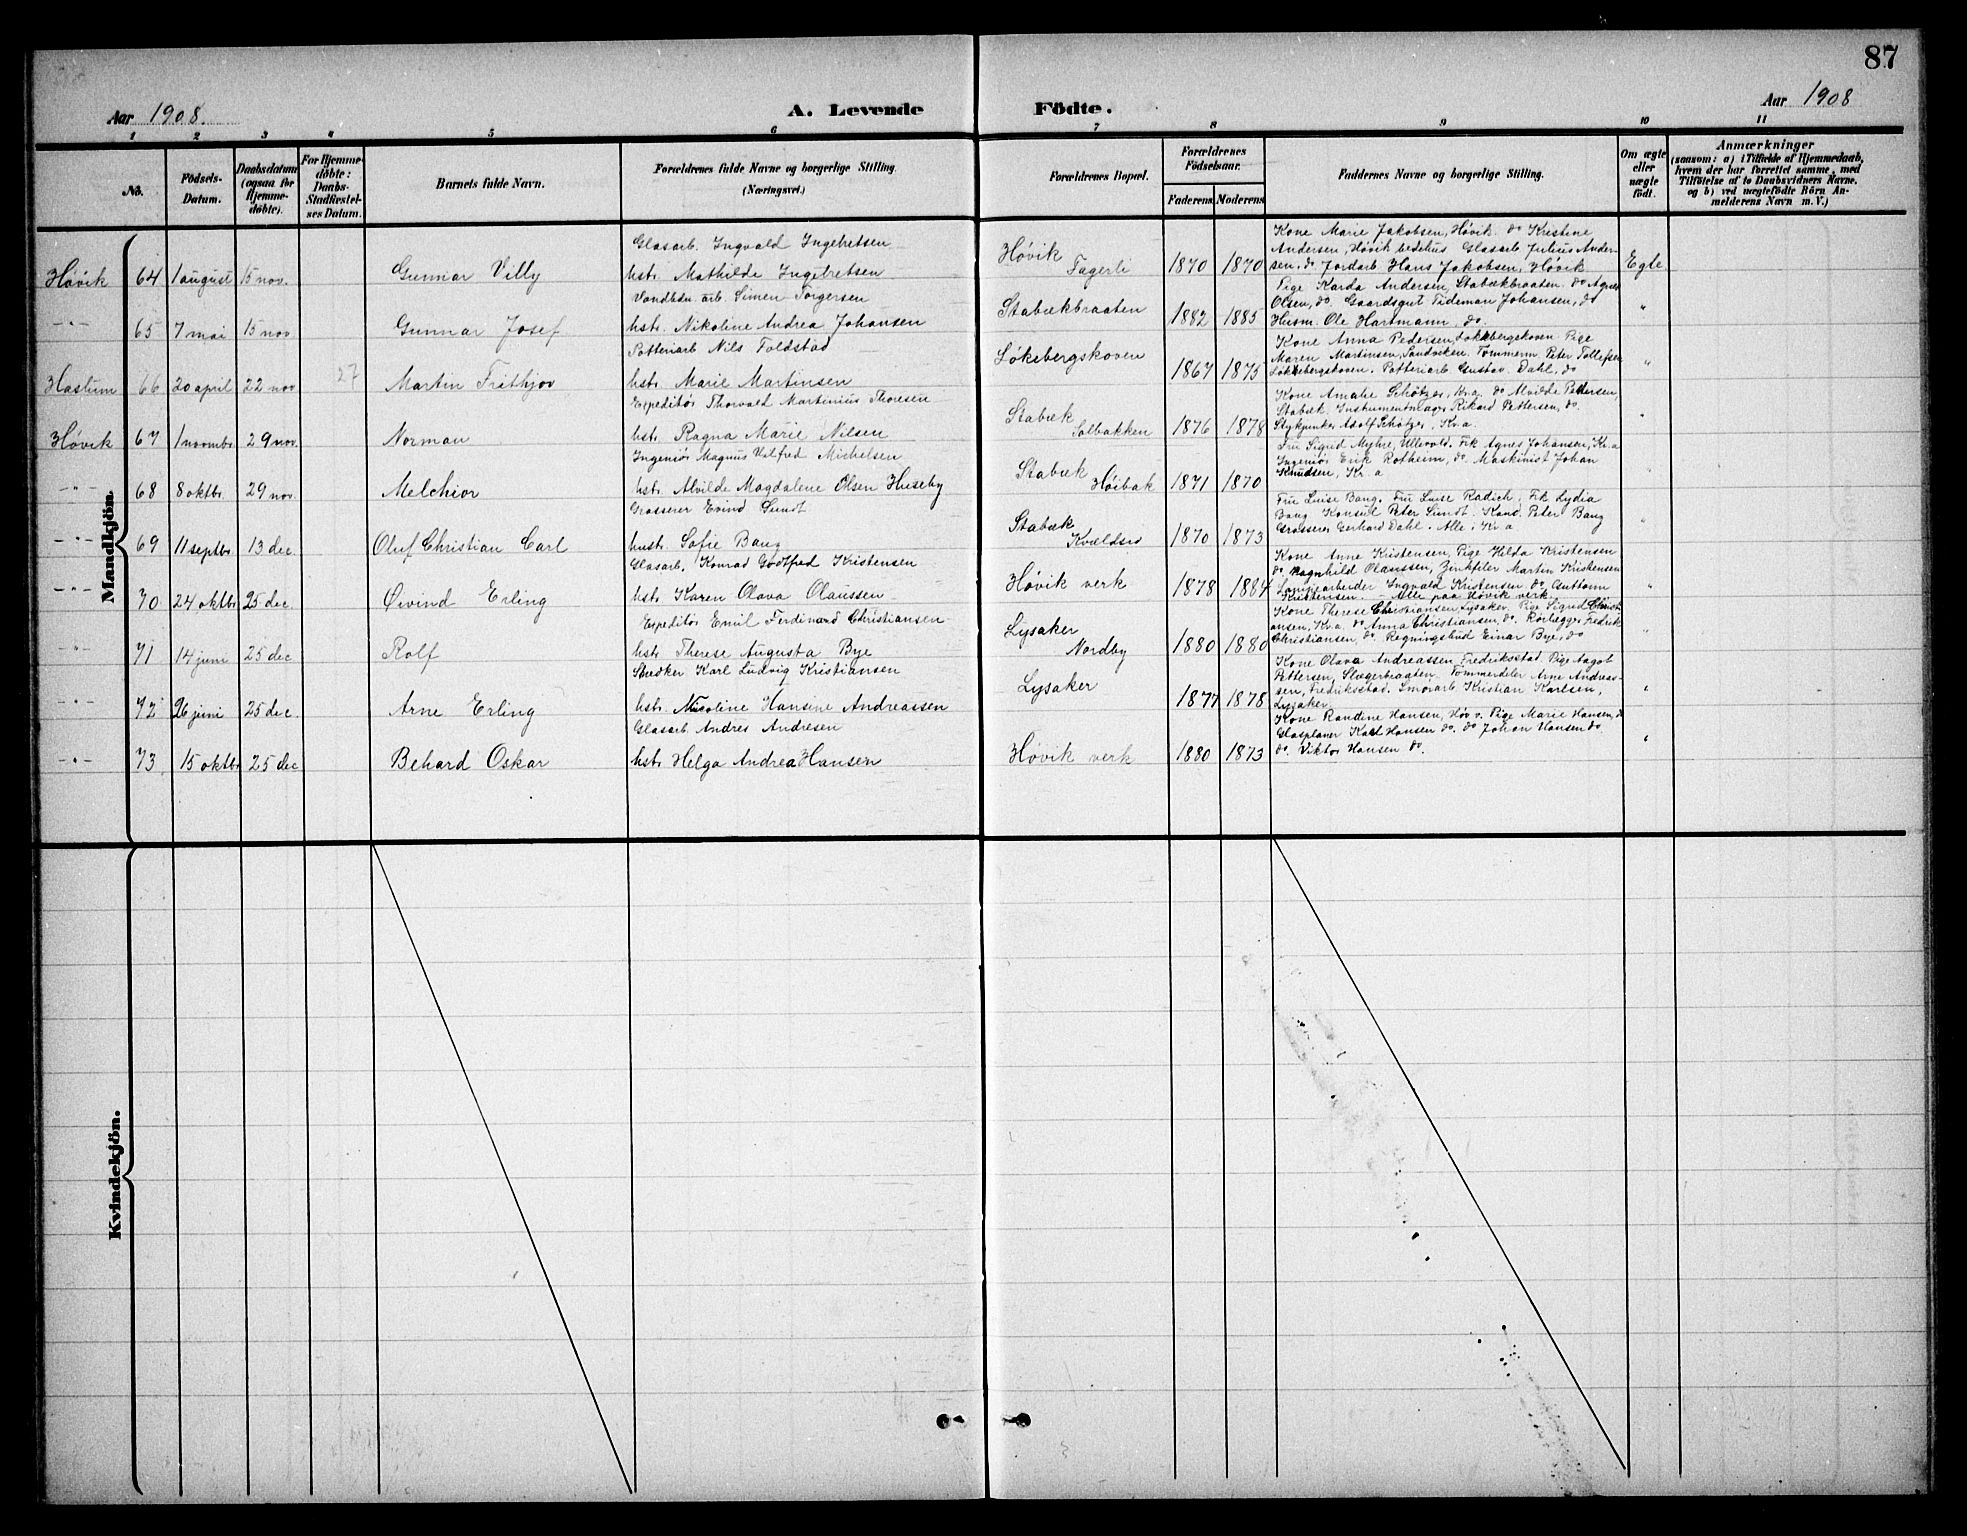 87
Aar 1908.
A. Levende
Födte.
Aar 1908
1 2 3 4 5 6 7 8 9 10 11
No.
Födsels-
Datum.
Daabsdatum
(ogsaa for
Hjemme-
döbte).
For Hjemme-
döbte:
Daabs-
Stadfæstel-
ses Datum.
Barnets fulde Navn.
Forældrenes fulde Navne og borgerlige Stilling
(Næringsvei.)
Forældrenes Bopæl.
Forældrenes
Födselsaar.
Faderens
Moderens
Faddernes Navne og borgerlige Stilling.
Om ægte
eller
uægte
født.
Anmærkninger
(saasom: a) i Tilfælde af Hjemmedaab,
hvem der har forrettet samme, med
Tilføielse af to Daabsvidners Navne,
og b) ved uægtefødte Börn An-
melderens Navn m. V.)
Mandkjön.
Høvik 64 1 august 15 nov. Gunnar Villy
Glasarb. Ingvald Ingebretsen
hstr. Mathilde Ingebretsen
Høvik
Fagerli
1870 1870
Kone Marie Jakobsen, Høvik. do Kristine
Andersen, Høvik bedehus Glasarb. Julius Ander-
sen, do. Jordarb. Hans Jakobsen, Høvik
Egte
-"- 65 7 mai 15 nov Gunnar Josef
Vandledn. arb. Simen Torgersen
hstr. Nikoline Andrea Johansen
Stabækbraaten
1882 1885
Pige Karda Andersen, Stabækbraaten. do Agnes
Olsen, do. Gaardsgut Tideman Johansen, do
Husm. Ole Hartmann, do.
"
Haslum 66 20 april 22 nov 27 Martin Frithjov
Potteriarb Nils Toldstad
hstr. Marie Martinsen
Løkebergskoven
1867 1875
Kone Anna Pedersen, Løkebergskoven. Pige
Maren Martinsen, Sandviken. Tømmerm. Peter Tollefsen
Løkebergskoven. Potteriarb Gustav Dahl, do
"
Høvik 67 1 novmbr. 29 nov. Norman
Expeditør Thorvald Martinius Thoresen
hstr. Ragna Marie Nilsen
Stabæk
Solbakken
1876 1878
Kone Amalie Schøtzer, Kr.a. do Alvilde Pettersen,
Stabæk. Instrumentmager Rikard Pettersen, do.
Stykjunker Adolf Schøtzer, Kr.a.
"
-"- 68 8 oktbr. 29 nov. Melchior
Ingeniør Magnus Valfred Michelsen
hstr. Alvilde Magdalene Olsen Huseby
Stabæk
Høibak
1871 1870
Fru Sigrid Myhre, Ullevold. Frk Agnes Johansen, Kr.a
Ingeniør Erik Rotheim, do. Maskinist Johan
Knudsen, Kr.a
"
-"- 69 11 septbr. 13 dec. Oluf Christian Carl
Grosserer Evind Sundt
hustr. Sofie Bang
Stabæk
Kvældsro
1870 1873
Fru Luise Bang. Fru Luise Radich. Frk Lydia
Bang Konsul Peter Sundt. Kand. Peter Bang
Grosserer Gerhard Dahl. Alle i Kr.a
"
-"- 70 24 oktbr 25 dec Øivind Erling
Glasarb. Konrad Godtfred Kristensen
hstr. Karen Olava Olaussen
Høvik verk
1878 1884
Kone Anne Kristensen, Pige Hilda Kristensen
do Ragnhild Olaussen, Zinkfeler Martin Kristensen
Lampearbeider Ingvald Kristensen do,
Kristensen. - Alle paa Høvik verk.
"
-"- 71 14 juni 25 dec Rolf
Expeditør Emil Ferdinand Christiansen
hstr. Therese Augusta Bye
Lysaker
Nordby
1880 1880
Kone Therese Christiansen, Lysaker. Pige Sigrid Christi-
ansen, Kr.a. do Anna Christiansen, do. Rørlægger Fredrik
Christiansen, do. Regningsbud Einar Bye, do
"
-"- 72 26 juni 25 dec. Arne Erling
Snedker Karl Ludvig Kristiansen
hstr. Nicoline Hansine Andreassen
Lysaker
1877 1878
Kone Olava Andreassen, Fredriksstad. Pige Aagot
Pettersen, Tømmerdeler Arne Andreas-
sen, Fredriksstad. Smørarb Kristian Karlsen,
Lysaker.
"
-"- 73 15 oktbr 25 dec Behard Oskar
Glasarb Andres Andresen
hstr. Helga Andrea Hansen
Høvik verk
1880 1873
Kone Randine Hansen, Høv v. Pige Marie Hansen, do
Glasplaner Karl Hansen do. do Johan Hansen do
do. Viktor Hansen do.
"
Kvindekjön.